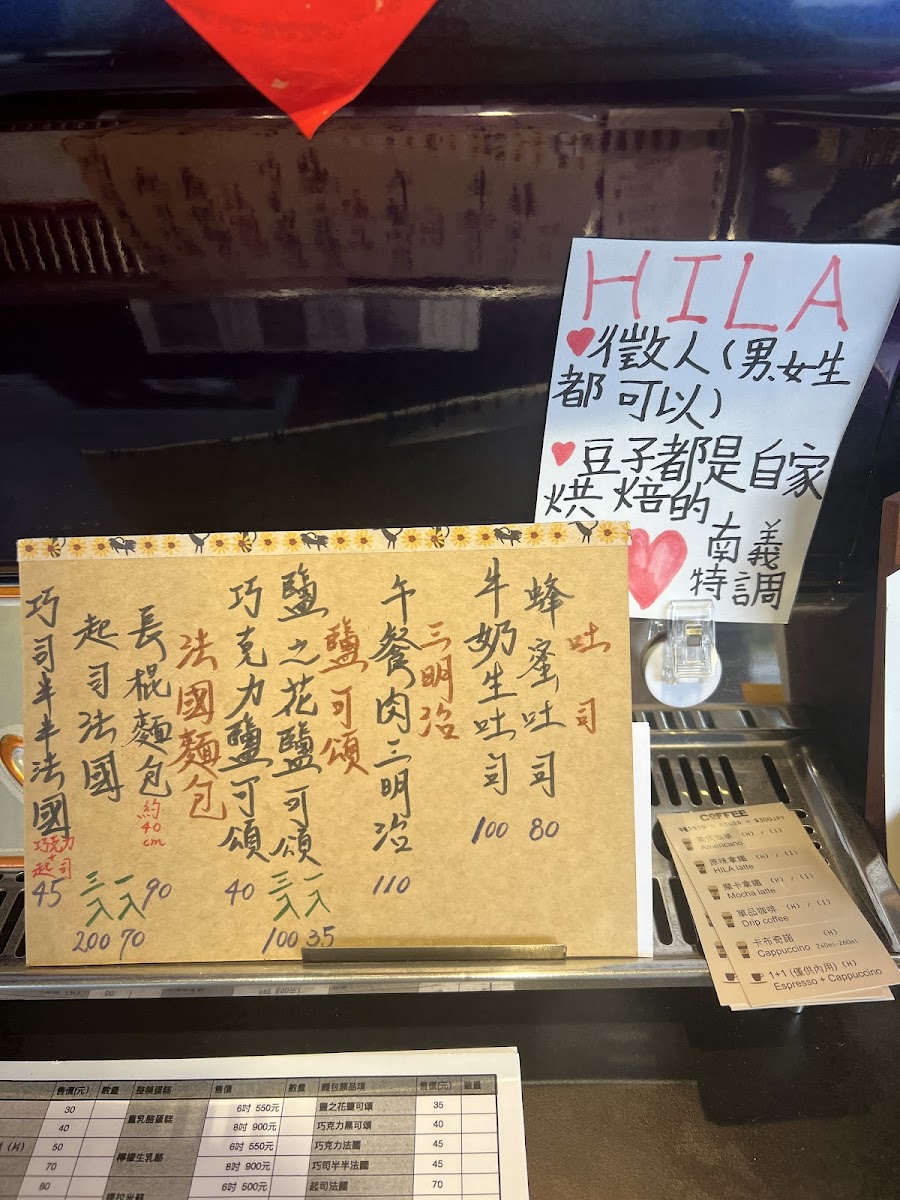 HILA
徵人(男、女生
都可以)
豆子都是自家
烘焙的
南義
特調
吐司
蜂蜜吐司 80
牛奶生吐司 100
三明治
午餐肉三明治 110
鹽可頌
鹽之花鹽可頌 一入 35 三入 100
巧克力鹽可頌 40
法國麵包
長棍麵包 約40cm 90
起司法國 一入 70 三入 200
巧司半半法國 巧克力+起司 45
COFFEE
Americano (H) / (I)
原味拿鐵 (H) / (I)
HILA latte
摩卡拿鐵 (H) / (I)
Mocha latte
單品咖啡 (H) / (I)
Drip coffee
卡布奇諾 (H)
Cappuccino 240ml-260ml
1+1 (僅供內用) (H)
Espresso + Cappuccino
售價(元) 數量 整模蛋糕 售價 數量 麵包類品項 售價(元) 數量
30 重乳酪蛋糕 6吋 550元 鹽之花鹽可頌 35
40 8吋 900元 巧克力黑可頌 40
(片) 50 檸檬生乳酪 6吋 550元 巧克力法國 45
70 8吋 900元 巧司半半法國 45
80 提拉米蘇 6吋 500元 起司法國 70